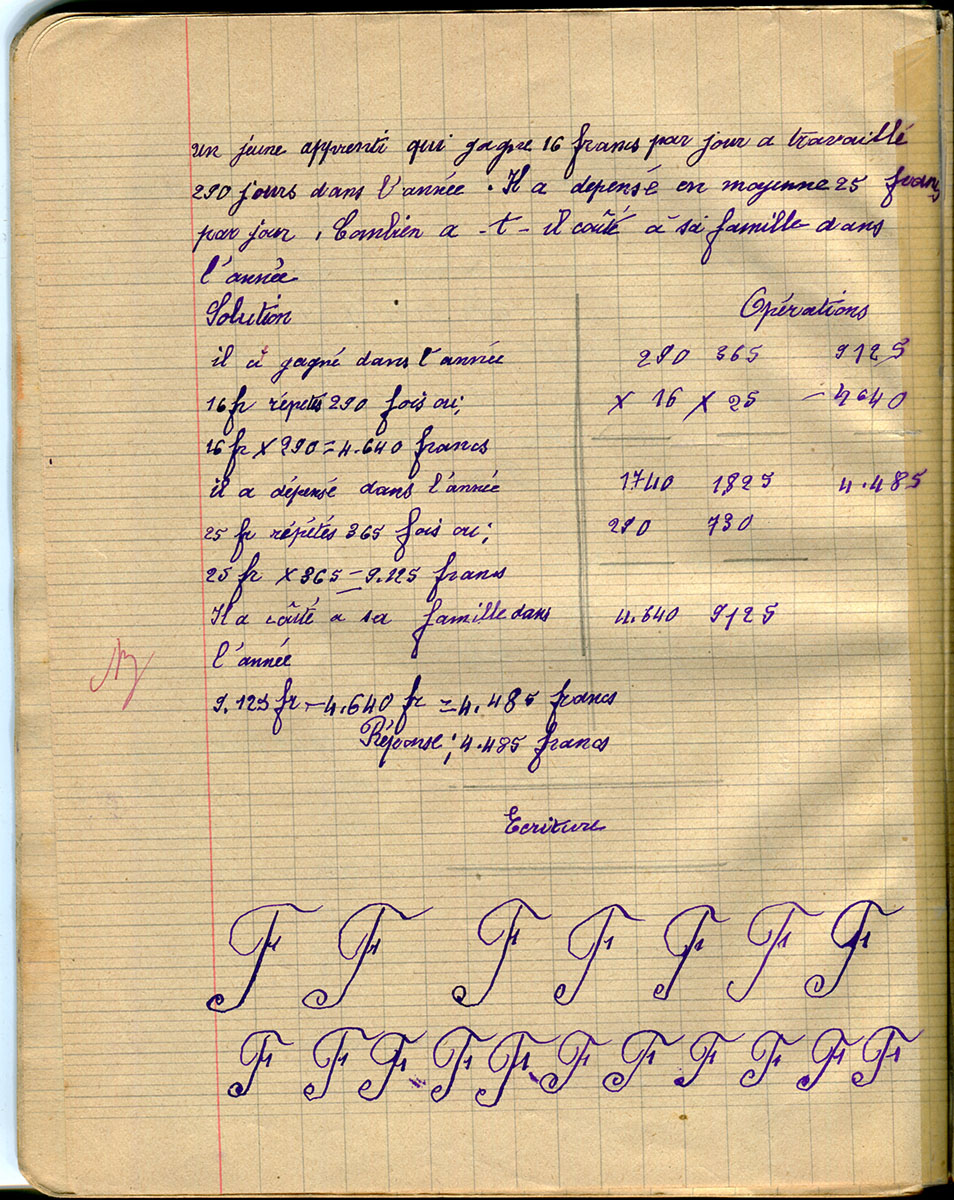 un jeune apprenti qui gagne 16 francs par jour a travaillé
290 jours dans l'année. Il a depensé en moyenne 25 francs
par jour. Combien a -t- il coûté à sa famille dans
l'année
Solution
Opérations
il a gagné dans l'année
290 365 9125
16 fr répétés 290 fois ou;
x 16 x 25 - 4640
16 fr x 290 = 4.640 francs
il a dépensé dans l'année
1740 1825 4.485
25 fr répétés 365 fois ou;
290 730
25 fr x 365 = 9.125 francs
Il a côuté a sa famille dans
4.640 9125
l'année
9.125 fr - 4.640 fr = 4.485 francs
Réponse; 4.485 francs
Ecriture
F F F F F F F
F F F F F F F F F F F